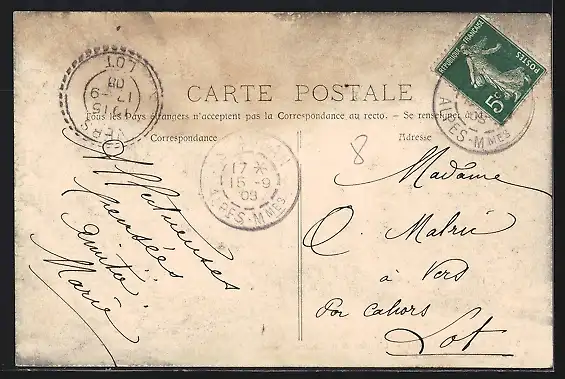 CARTE POSTALE
Tous les Pays étrangers n'acceptent pas la Correspondance au recto. — Se renseigner à
Correspondance
Adresse
VERS
1915
17-9
08
LOT
17
15-9
08
ALPES-MMES
RÉPUBLIQUE FRANÇAISE
POSTES
5c
ALPES-MMES
8
Affectueuses
pensées
amitié
Marie
Madame
C. Malrie
à Vers
Par Cahors
Lot